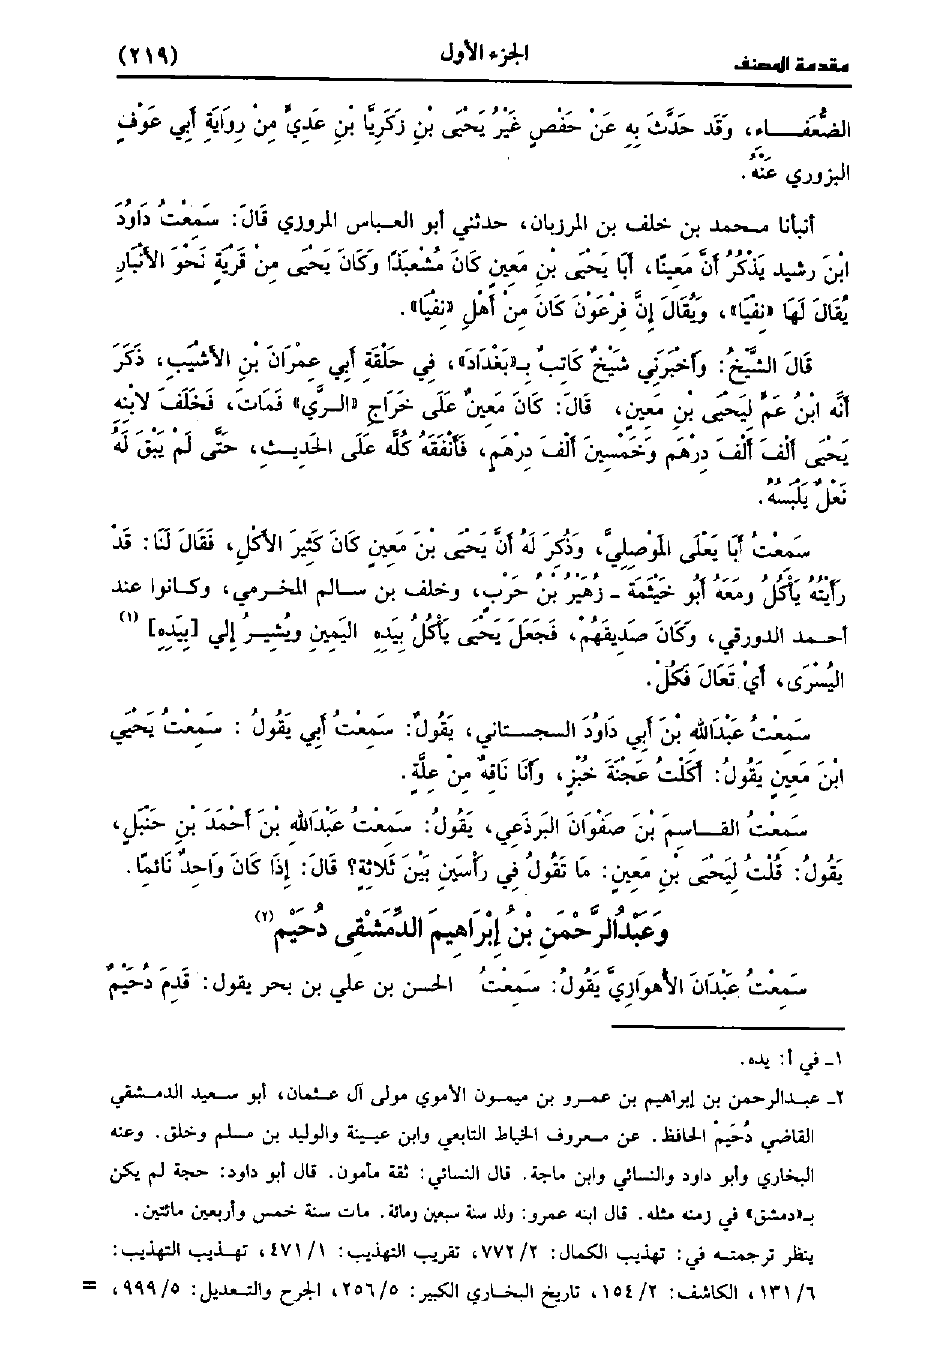 مقدمة المصنف
الجزء الأول
(٢١٩)
الضُّعَفَاء، وَقَد حَدَّثَ بِهِ عَنْ حَفْصٍ غَيْرُ يَحْيَى بنِ زَكَرِيَّا بنِ عَدِيٍّ مِنْ رِوَايَةِ أَبِي عَوْفٍ
البزوري عَنْهُ.
أنبأنا محمد بن خلف بن المرزبان، حدثني أبو العباس المروزي قَالَ: سَمِعْتُ دَاوُدَ
ابْنَ رشيد يَذْكُرُ أَنَّ مَعِينًا، أَبَا يَحْيَى بنِ مَعِينٍ كَانَ مُشَعْبِذًا وَكَانَ يَحْيَى مِن قَرْيَةٍ نَحْوَ الأَنْبَارِ
يُقَالَ لَهَا «نِقْيَا»، وَيُقَالَ إِنَّ فِرْعَوْنَ كَانَ مِنْ أَهْلِ «نِقْيَا».
قَالَ الشَّيْخُ: وأَخْبَرَنِي شَيْخٌ كَاتِبٌ بِـ«بَغْدَادَ»، فِي حَلْقَةِ أَبِي عِمْرَانَ بْنِ الأَشْيَبِ، ذَكَرَ
أنَّه ابْنُ عَمٍّ لِيَحْيَى بنِ مَعِينٍ، قَالَ: كَانَ مَعِينٌ عَلَى خَرَاجِ «الرَّي» فَمَاتَ، فَخَلَّفَ لابْنِهِ
يَحْيَى أَلْفَ أَلْفَ دِرْهَمٍ وَخَمْسِينَ أَلْفَ دِرْهَمٍ، فَأَنْفَقَهُ كُلَّه عَلَى الحَدِيثِ، حَتَّى لَمْ يَبْقَ لَهُ
نَعْلٌ يَلْبَسُهُ.
سَمِعْتُ أَبَا يَعْلَى المَوْصِلِيَّ، وَذُكِرَ لَهُ أَنَّ يَحْيَى بنَ مَعِينٍ كَانَ كَثِيرَ الأَكْلِ، فَقَالَ لَنَا: قَدْ
رَأَيْتُهُ يَأْكُلُ ومَعَهُ أَبُو خَيْثَمَةَ - زُهَيْرُ بْنُ حَرْبٍ، وخلف بن سالم المخرمي، وكانوا عند
أحمد الدورقي، وَكَانَ صَدِيقَهُمْ، فَجَعَلَ يَحْيَى يَأْكُلُ بِيَدِهِ اليَمِينِ ويُشِيرُ إلي [بِيَدِهِ](١)
اليُسْرَى، أَيْ تَعَالَ فَكُلْ.
سَمِعْتُ عَبْدَالله بْنَ أَبِي دَاوُدَ السجستاني، يَقُولُ: سَمِعْتُ أَبِي يَقُولُ: سَمِعْتُ يَحْيَي
ابْنَ مَعِينٍ يَقُولُ: أَكَلْتُ عَجْنَةَ خُبْزٍ، وَأَنَا نَاقِهٌ مِنْ عِلَّةٍ.
سَمِعْتُ القَاسِمَ بْنَ صَفْوَانَ البَرذَعي، يَقُولُ: سَمِعْتُ عَبْدَاللهِ بْنَ أَحْمَدَ بْنِ حَنْبَلٍ،
يَقُولُ: قُلْتُ لِيَحْيَى بْنِ مَعِينٍ: مَا تَقُولُ فِي رَأْسَينِ بَيْنَ ثَلاثَةٍ؟ قَالَ: إِذَا كَانَ وَاحِدٌ نَائِمًا.
وَعَبْدُالرَّحْمَنِ بْنُ إِبْرَاهِيمَ الدِّمَشْقِي دُحَيْم(٢)
سَمِعْتُ عَبْدَانَ الأَهْوازِيَّ يَقُولُ: سَمِعْتُ الحسن بن علي بن بحر يقول: قَدِمَ دُحَيْمٌ
١- في أ: يده.
٢- عبدالرحمن بن إبراهيم بن عمرو بن ميمون الأموي مولى آل عثمان، أبو سعيد الدمشقي
القاضي دُحَيْم الحافظ. عن معروف الخياط التابعي وابن عيينة والوليد بن مسلم وخلق. وعنه
البخاري وأبو داود والنسائي وابن ماجة. قال النسائي: ثقة مأمون. قال أبو داود: حجة لم يكن
بـ«دمشق» في زمنه مثله. قال ابنه عمرو: ولد سنة سبعين ومائة. مات سنة خمس وأربعين مائتين.
ينظر ترجمته في: تهذيب الكمال: ٧٧٢/٢، تقريب التهذيب: ٤٧١/١، تهذيب التهذيب:
١٣١/٦، الكاشف: ١٥٤/٢، تاريخ البخاري الكبير: ٢٥٦/٥، الجرح والتعديل: ٩٩٩/٥، =